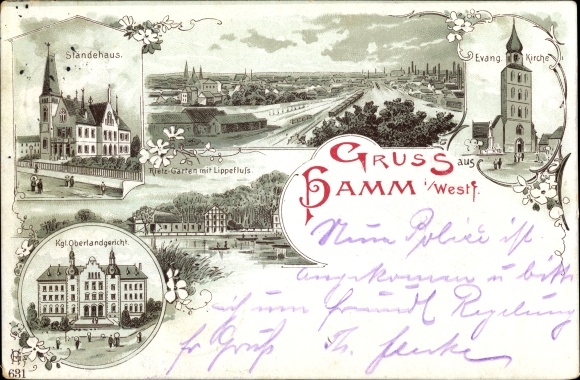 Ständehaus.
Evang. Kirche
Rietz-Garten mit Lippefluss.
GRUSS aus
HAMM i/Westf.
Kgl. Oberlandgericht.
Neue Police ist
angekommen u bitte
ich um freundl Regelung
fr Gruß Th.
631